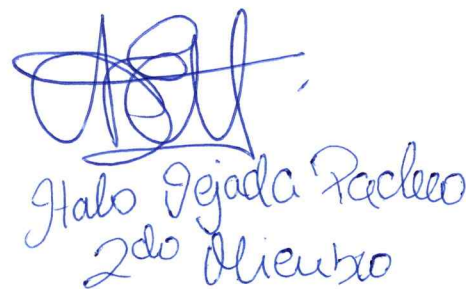 Italo Tejada Pacheco
2do Miembro